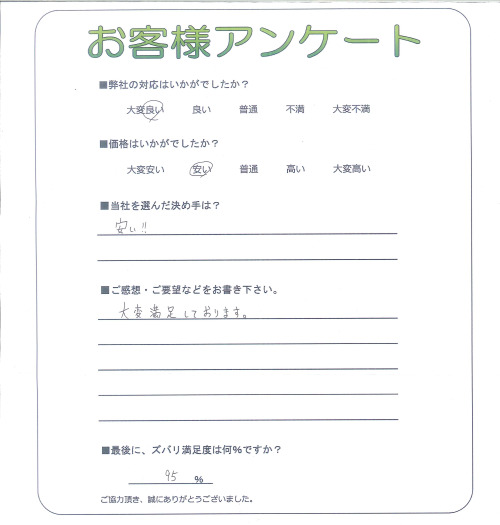 お客様アンケート
■弊社の対応はいかがでしたか？
大変良い 良い 普通 不満 大変不満
■価格はいかがでしたか？
大変安い 安い 普通 高い 大変高い
■当社を選んだ決め手は？
安い!!
■ご感想・ご要望などをお書き下さい。
大変満足しております。
■最後に、ズバリ満足度は何％ですか？
95 ％
ご協力頂き、誠にありがとうございました。